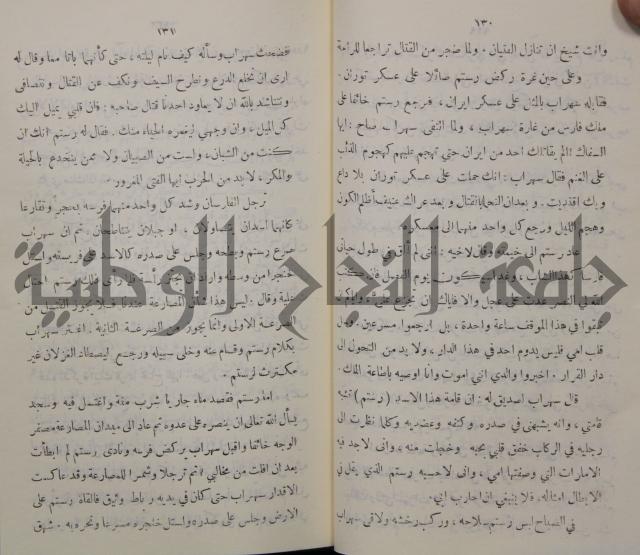 ١٣٠
وانت شيخ ان تنازل الفتيان . ولما ضجر من القتال تراجعا للرماة
وعلى حين غرة ركض رستم صائلا على عسكر توران .
فقابله سهراب بالمثل على عسكر ايران ، فرجع رستم خائفا على
ملك فارس من غارة سهراب ، ولما التقى سهراب صاح : ايها
السفاك ! ألم يقاتلك احد من ايران حتى تهجم عليهم كهجوم الذئب
على الغنم فقال سهراب : انك حملت على عسكر توران بلا داع
وبك اقتديت . و بعد ان التحما بقتال و بعد عراك عنيف أظلم الكون
وهجم الليل ورجع كل واحد منهما الى معسكره
عاد رستم الى خيمته وقال لاخيه : انى لم ألق في طول حياتي
في هذا الموقف ساعة واحدة ، بل ارجعوا مسرعين . وسل
قلب امي فليس يدوم احد في هذا الدار ، ولا بد من التحول الى
دار القرار . اخبروا والدي انني اموت وانا اوصيه باطاعة الملك .
قال سهراب لصديق له : ان قامة هذا الاسد ( رستم ) تشبه
قامتي ، وانه يشبهني في صدره وكتفه وعضديه وكلما نظرت الى
رجليه في الركاب خفق قلبي بحبه وخجلت منه ، وانى لاجد فيه
الامارات التي وصفتها امي ، وانى لاحسبه رستم الذي يقل في
الابطال امثاله ، فلا ينبغي ان احارب ابي .
في الصباح لبس رستم سلاحه ، وركب رخشه ولاقى سهراب
١٣١
فضحك سهراب وسأله كيف نام ليلته ، حتى كأنهما باتا معا وقال له
ارى ان نخلع الدرع ونطرح السيف ونكف عن القتال ونتصافى
ونتناشد بالله ان لا يعاود احدنا قتال صاحبه : فان قلبي يميل اليك
كل الميل ، وان وجهي ليغمره الحياء منك . فقال له رستم انك ان
كنت من الشبان ، ولست من الصبيان ولا ممن ينخدع بالحيلة
والمكر ، لا بد من الحرب ايها الفتى المغرور .
ترجل الفارسان وشد كل واحد منهما فرسه بحجر وتقارعا
كأنهما اسدان يتصاولان ، او جبلان يتناطحان ، ثم ان سهراب
صرع رستم وبطحه وجلس على صدره كالاسد على فريسته واستل
خنجرا من وسطه واراد ان
عليه وقال : ليس هذا شأن المصارعة عندنا فلا يجوز القتل من
الصرعة الاولى وانما يجوز من الصرعة الثانية . اغتر سهراب
بكلام رستم وقام عنه وخلى سبيله ورجع ليصطاد الغزلان غير
مكترث لرستم .
اما رستم فقصد ماء جاريا شرب منه واغتسل فيه وسجد
يسأل الله تعالى ان ينصره على عدوه ثم عاد الى ميدان المصارعة مصفر
الوجه خائفا واقبل سهراب يركض فرسه ونادى رستم لم ابطأت
بعد ان افلت من مخالبي ؟ ثم ترجلا وشمرا للمصارعة وقد عاكست
الاقدار سهراب حتى كان في يديه رباط وثيق فالقاه رستم على
الارض وجلس على صدره واستل خنجره مسرعا ونحره به . شهق
جامعة النجاح الوطنية